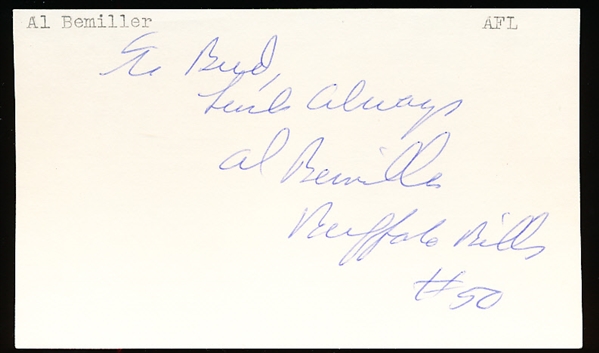 Al Bemiller AFL
To Bud,
Luck Always
Al Bemiller
Buffalo Bills
#50